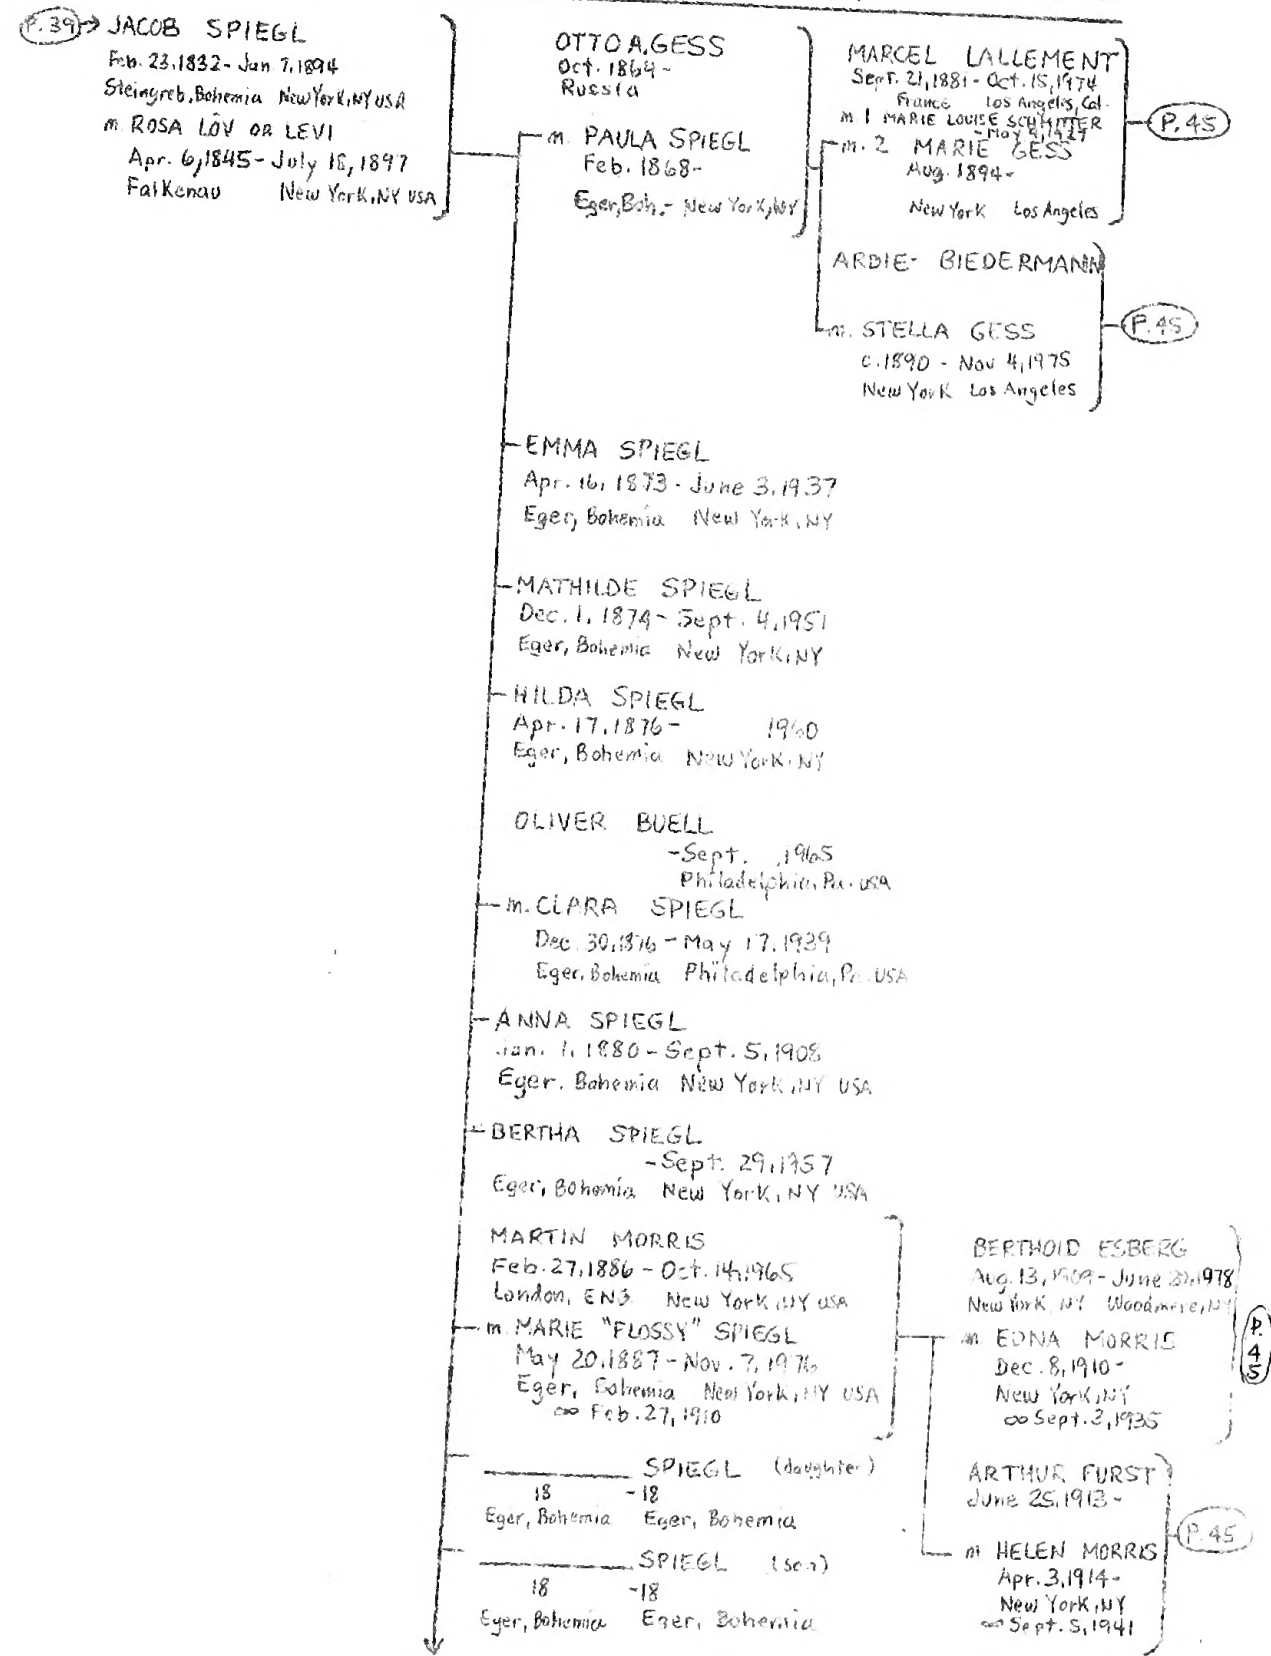 P.39 → JACOB SPIEGL
Feb. 23, 1832 - Jan 7, 1894
Steingreb, Bohemia New York, NY USA
m ROSA LÖV OR LEVI
Apr. 6, 1845 - July 18, 1897
Falkenau New York, NY USA
OTTO A. GESS
Oct. 1864 -
Russia
m. PAULA SPIEGL
Feb. 1868 -
Eger, Boh. - New York, NY
MARCEL LALLEMENT
Sept. 21, 1881 - Oct. 15, 1974
France Los Angeles, Cal.
m. 1 MARIE LOUISE SCHMITTER
- May 9, 1927
m. 2 MARIE GESS
Aug. 1894 -
New York Los Angeles
P. 45
ARDIE - BIEDERMANN
m. STELLA GESS
c. 1890 - Nov 4, 1975
New York Los Angeles
P. 45
EMMA SPIEGL
Apr. 16, 1873 - June 3, 1937
Eger, Bohemia New York, NY
MATHILDE SPIEGL
Dec. 1, 1874 - Sept. 4, 1951
Eger, Bohemia New York, NY
HILDA SPIEGL
Apr. 17, 1876 - 1960
Eger, Bohemia New York, NY
OLIVER BUELL
- Sept. , 1965
Philadelphia, Pa. USA
m. CLARA SPIEGL
Dec. 30, 1876 - May 17, 1939
Eger, Bohemia Philadelphia, Pa. USA
ANNA SPIEGL
Jan. 1, 1880 - Sept. 5, 1908
Eger. Bohemia New York, NY USA
BERTHA SPIEGL
- Sept. 29, 1957
Eger, Bohemia New York, NY USA
MARTIN MORRIS
Feb. 27, 1886 - Oct. 14, 1965
London, ENG. New York, NY USA
m. MARIE "FLOSSY" SPIEGL
May 20, 1887 - Nov. 7, 1976
Eger, Bohemia New York, NY USA
∞ Feb. 27, 1910
BERTHOLD ESBERG
Aug. 13, 1909 - June , 1978
New York, NY Woodmere, NY
m. EDNA MORRIS
Dec. 8, 1910 -
New York, NY
∞ Sept. 2, 1935
P. 45
SPIEGL (daughter)
18 - 18
Eger, Bohemia Eger, Bohemia
SPIEGL (son)
18 - 18
Eger, Bohemia Eger, Bohemia
ARTHUR FURST
June 25, 1913 -
m HELEN MORRIS
Apr. 3, 1914 -
New York, NY
∞ Sept. 5, 1941
P. 45